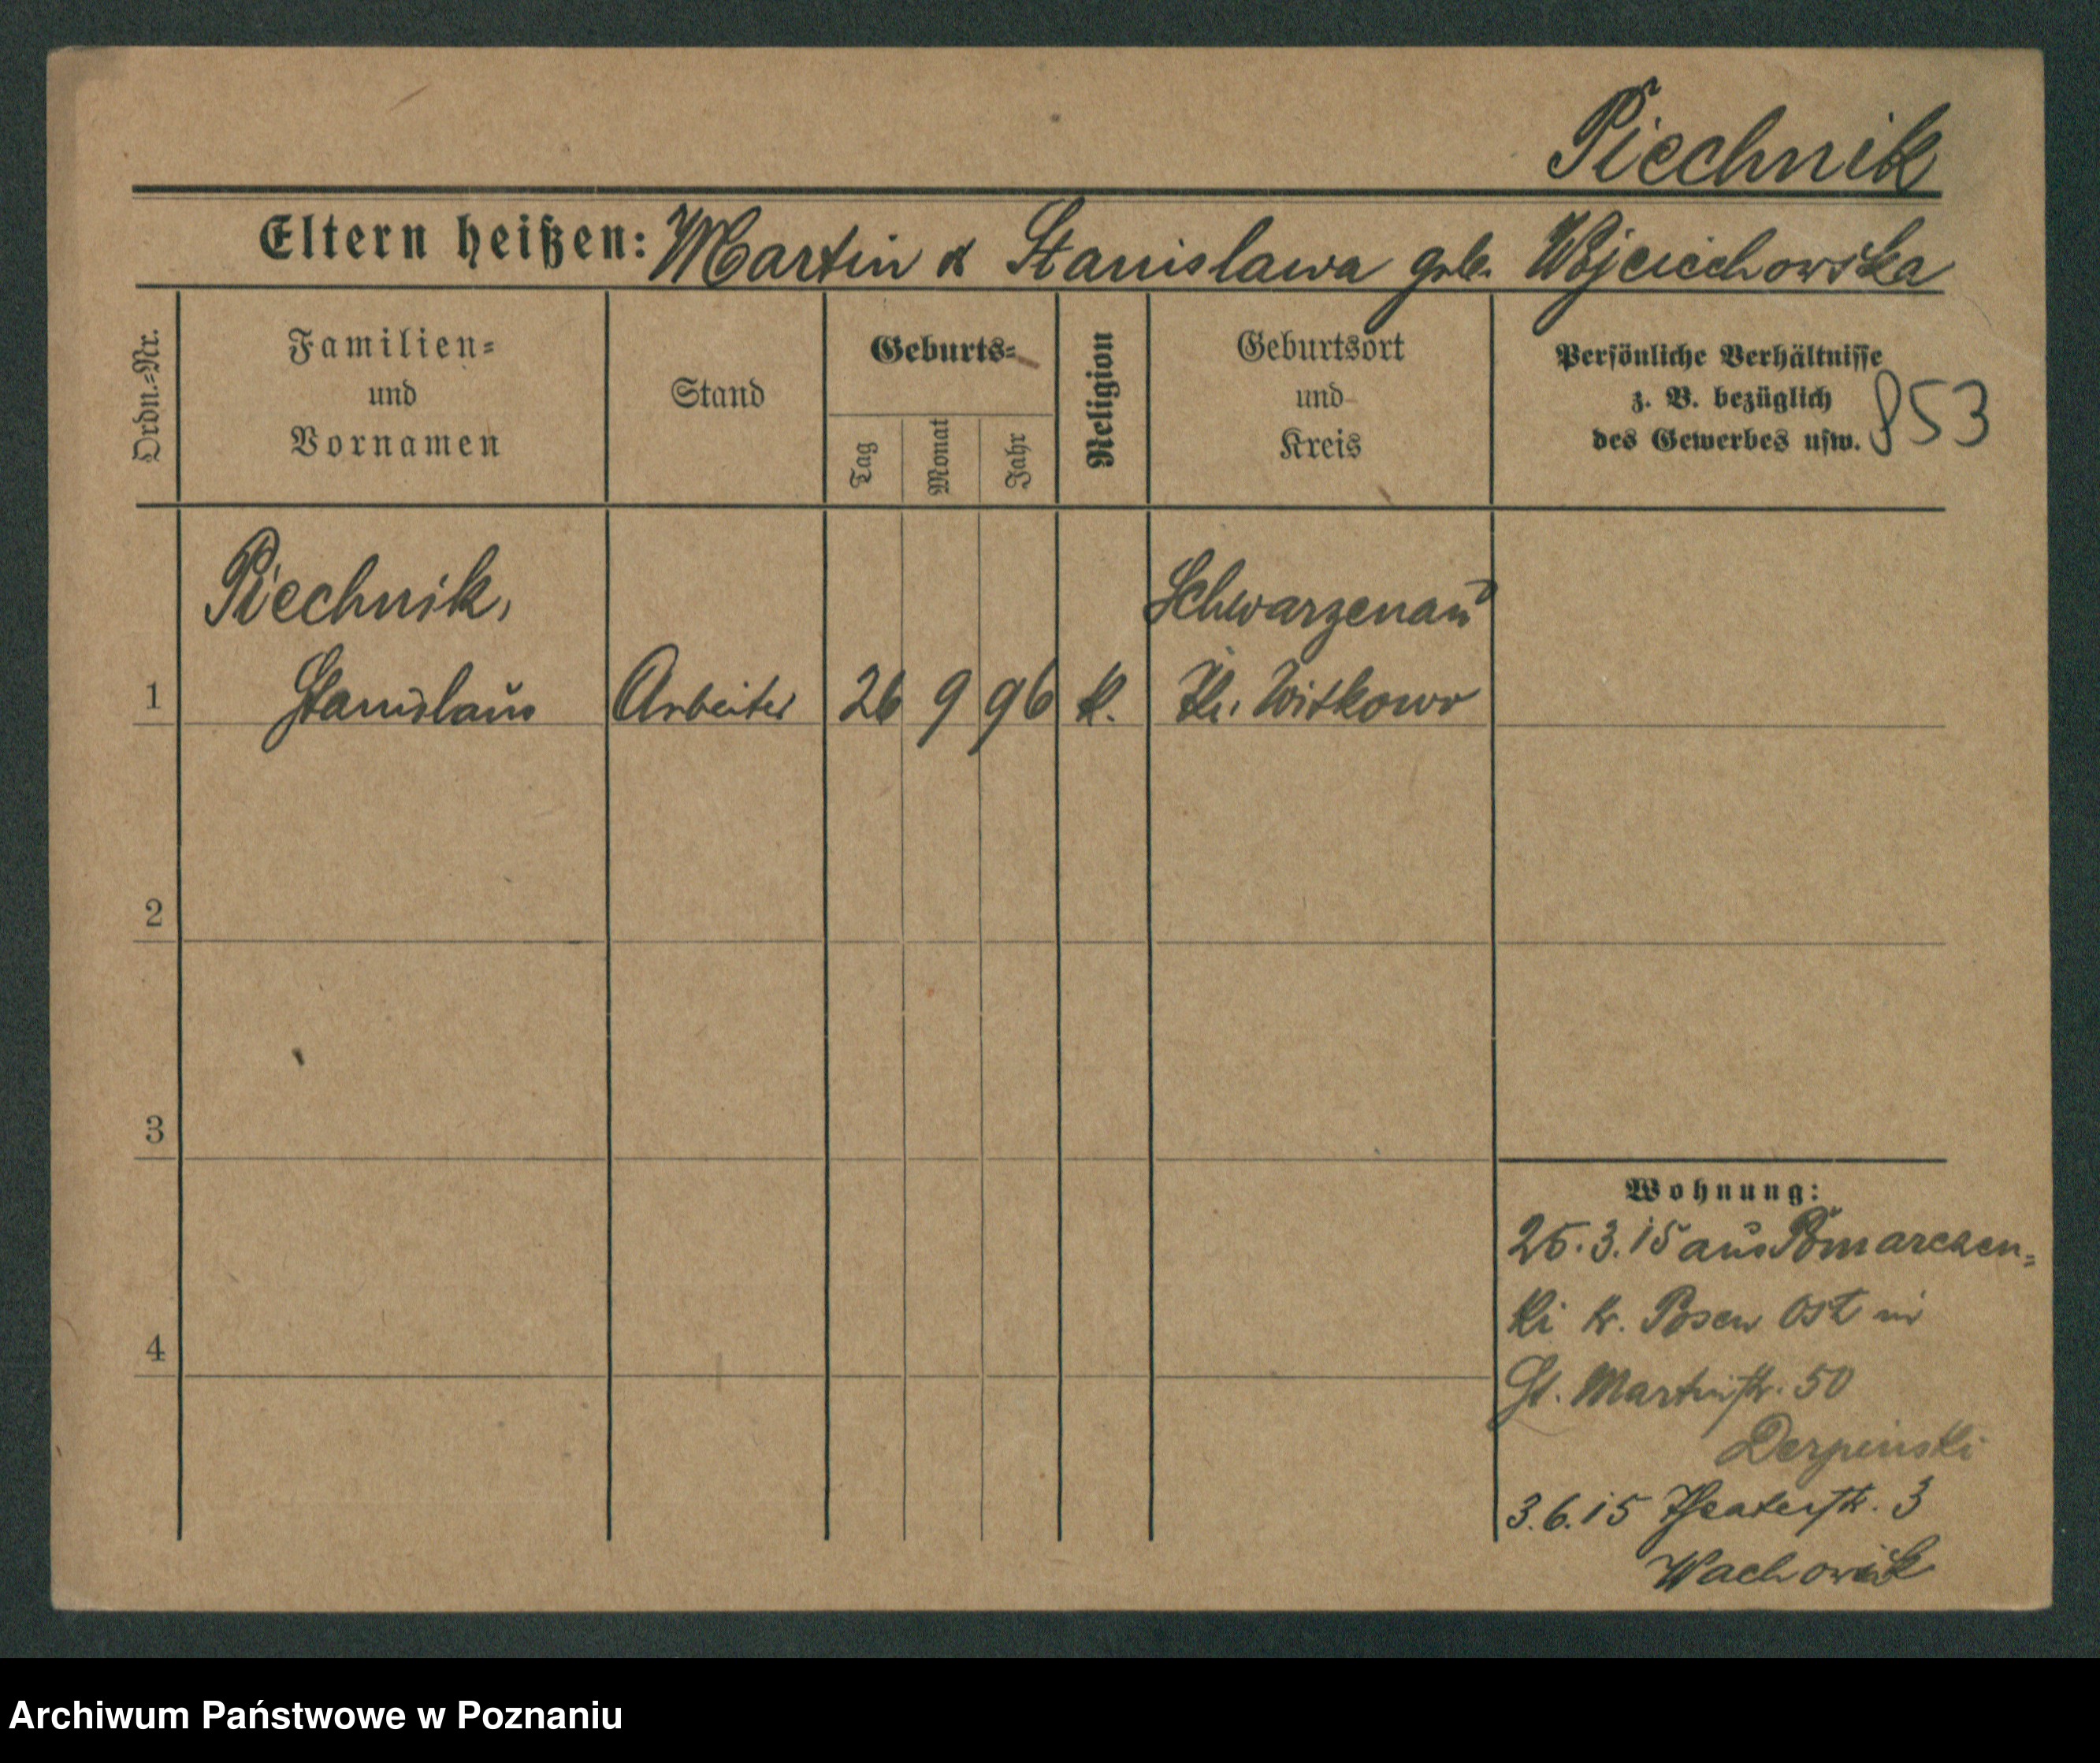 Piechnik
Eltern heißen: Martin & Stanislawa geb. Wojciechowska
Ordn.-Nr.
Familien-
und
Vornamen
Stand
Geburts-
Tag
Monat
Jahr
Religion
Geburtsort
und
Kreis
Persönliche Verhältnisse
z. B. bezüglich
des Gewerbes usw.
853
Piechnik,
Schwarzenau
1 Stanislaus Arbeiter 26 9 96 k. Kr. Witkowo
2
3
4
Wohnung:
25.3.15 aus
ki Kr. Posen Ost in
St. Martinstr. 50
3.6.15 Theaterstr. 3
Wachowiak
Archiwum Państwowe w Poznaniu